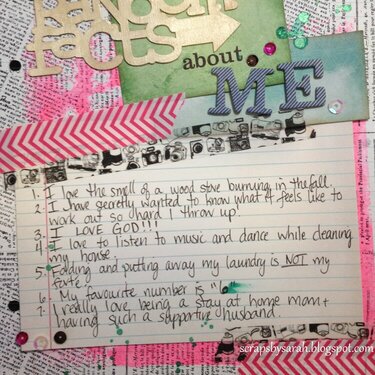 RANDOM
FACTS
about
ME
1. I love the smell of a wood stove burning in the fall.
2. I have secretly wanted to know what it feels like to
work out so hard I throw up.
3. I LOVE GOD!!!
4. I love to listen to music and dance while cleaning
my house.
5. Folding and putting away my laundry is NOT my
forte!
6. My favourite number is "6"
7. I really love being a stay at home mom +
having such a supportive husband.
scrapsbysarah.blogspot.com